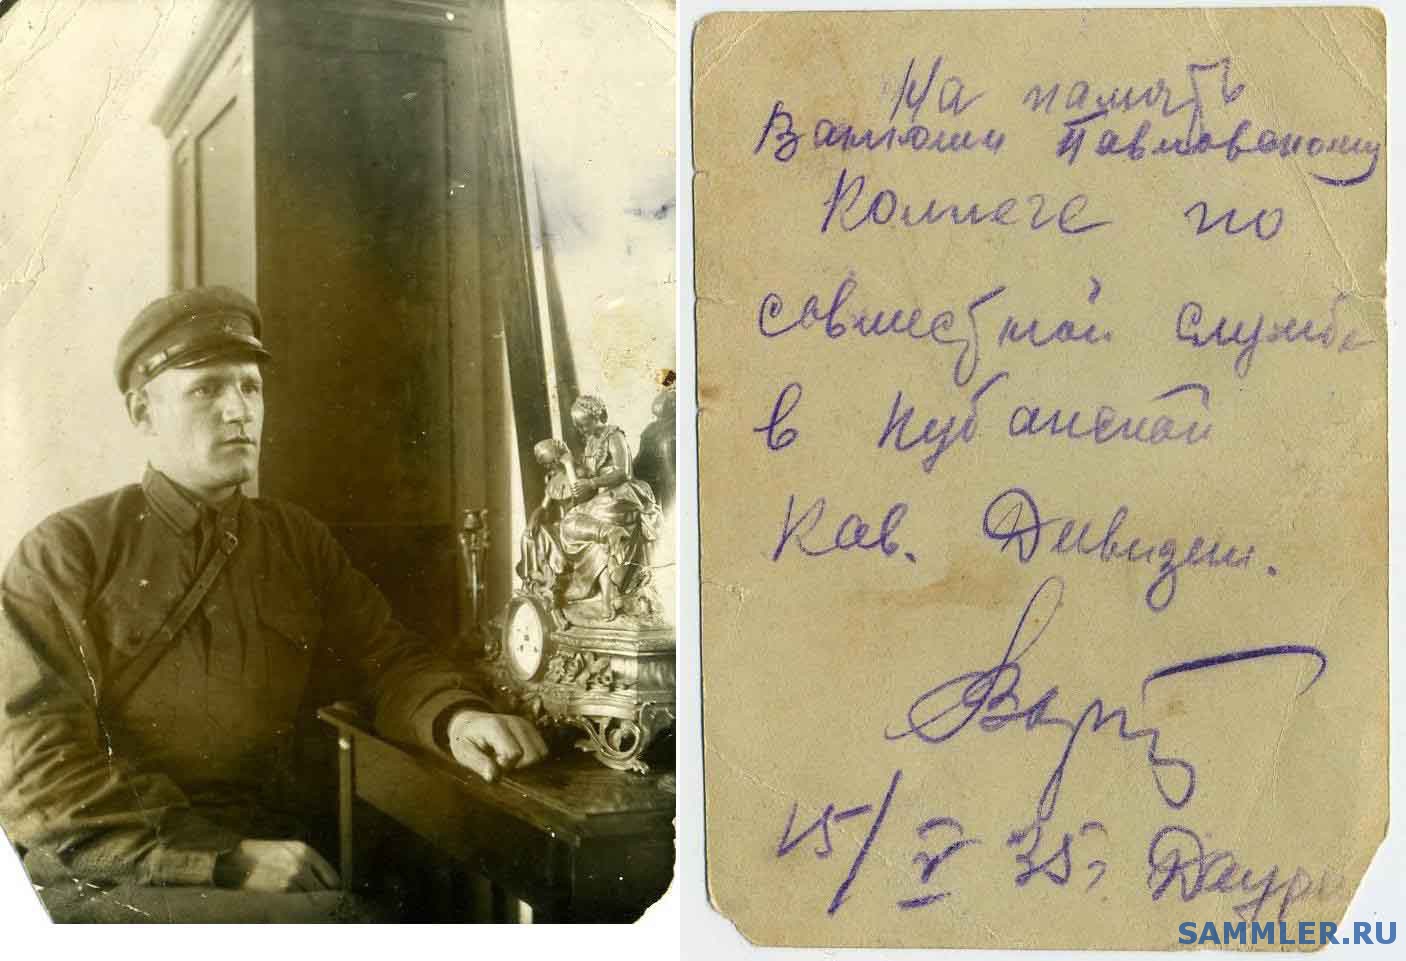 На память
Павловскому
Коллеге по
совместной службе
в Кубанской
Кав. Дивизии.
15/V 35г Даури
SAMMLER.RU